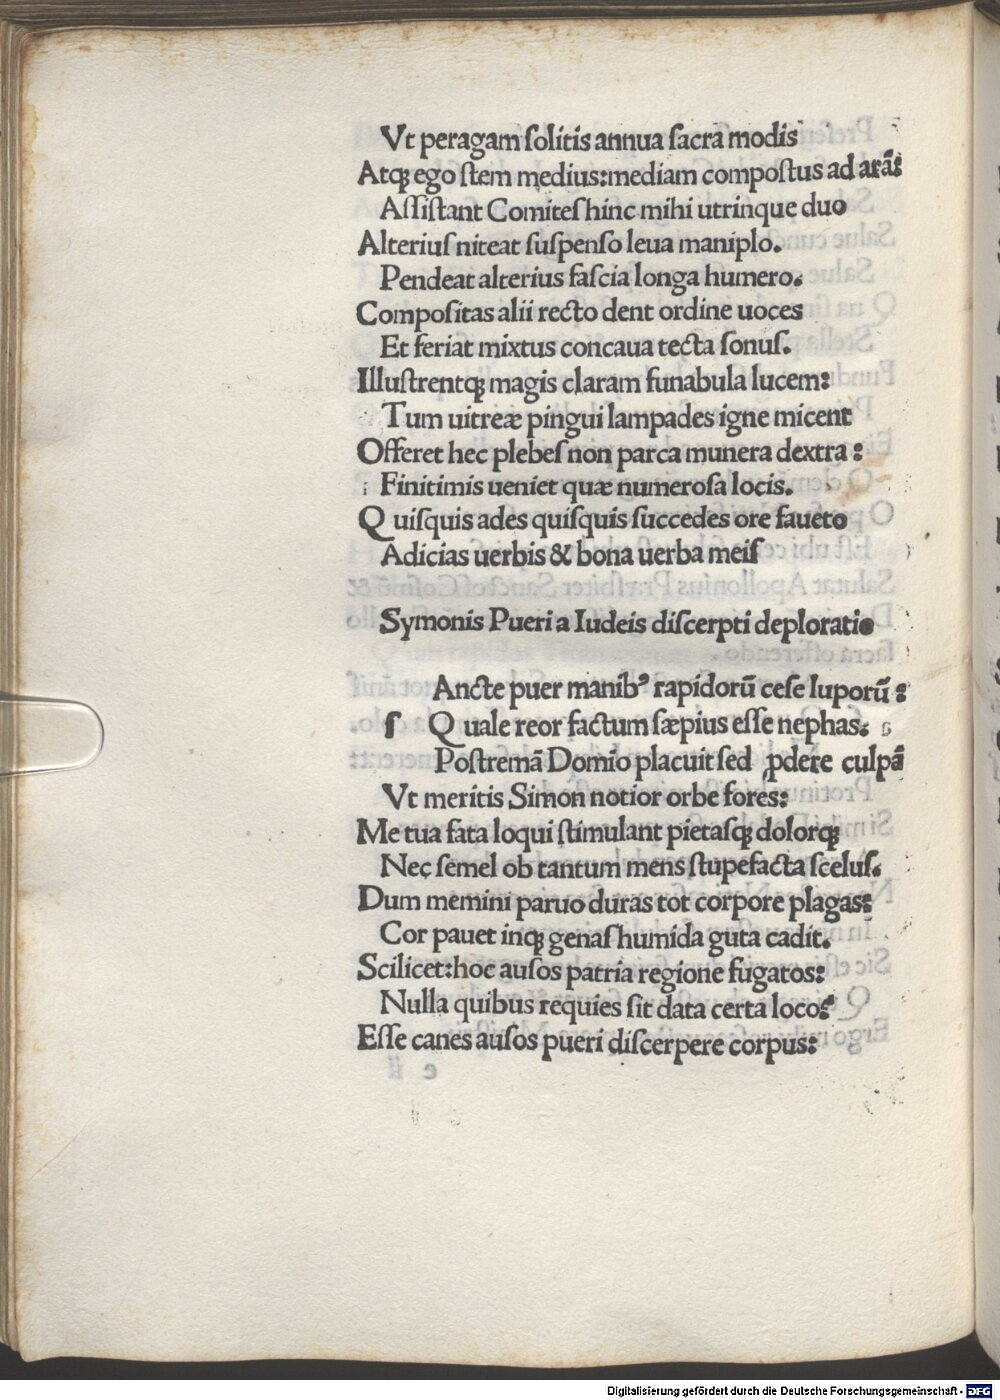 Vt peragam ſolitis annua ſacra modis
Atq; ego ſtem medius:mediam compoſtus ad arā:
Aſſiſtant Comiteſ hinc mihi utrinque duo
Alteriuſ niteat ſuſpenſo leua maniplo.
Pendeat alterius faſcia longa humero.
Compoſitas alii recto dent ordine uoces
Et feriat mixtus concaua tecta ſonuſ.
Illuſtrentq; magis claram funabula lucem:
Tum uitreæ pingui lampades igne micent
Offeret hec plebeſ non parca munera dextra :
Finitimis ueniet quæ numeroſa locis.
Q uiſquis ades quiſquis ſuccedes ore faueto
Adicias uerbis & bona uerba meiſ
Symonis Pueri a Iudeis diſcerpti deploratio
Ancte puer manibꝰ rapidorū ceſe luporū :
ſ Q uale reor factum ſæpius eſſe nephas.
Poſtremā Domīo placuit ſed ꝓdere culpā
Vt meritis Simon notior orbe fores:
Me tua fata loqui ſtimulant pietaſq; dolorq;
Nec ſemel ob tantum mens ſtupefacta ſceluſ.
Dum memini paruo duras tot corpore plagas:
Cor pauet inq; genaſ humida guta cadit.
Scilicet:hoc auſos patria regione fugatos:
Nulla quibus requies ſit data certa loco:
Eſſe canes auſos pueri diſcerpere corpus:
Digitalisierung gefördert durch die Deutsche Forschungsgemeinschaft - DFG